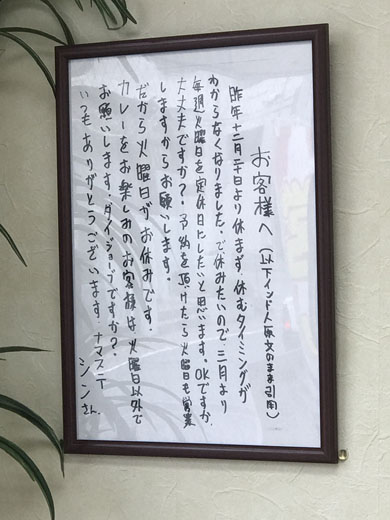 お客様へ（以下インド人原文のまま引用）
昨年十二月二十日より休まず、休むタイミングが
わからなくなりました。で休みたいので三月より
毎週火曜日を定休日にしたいと思います。OKですか、
大丈夫ですか？・予約を頂けたら火曜日も営業
しますからお願いします・
だから火曜日がお休みです・
カレーをお楽しみのお客様は火曜日以外で
お願いします・ダイ・ジョーブですか？・
いつもありがとうございます ナマステ
シンさん